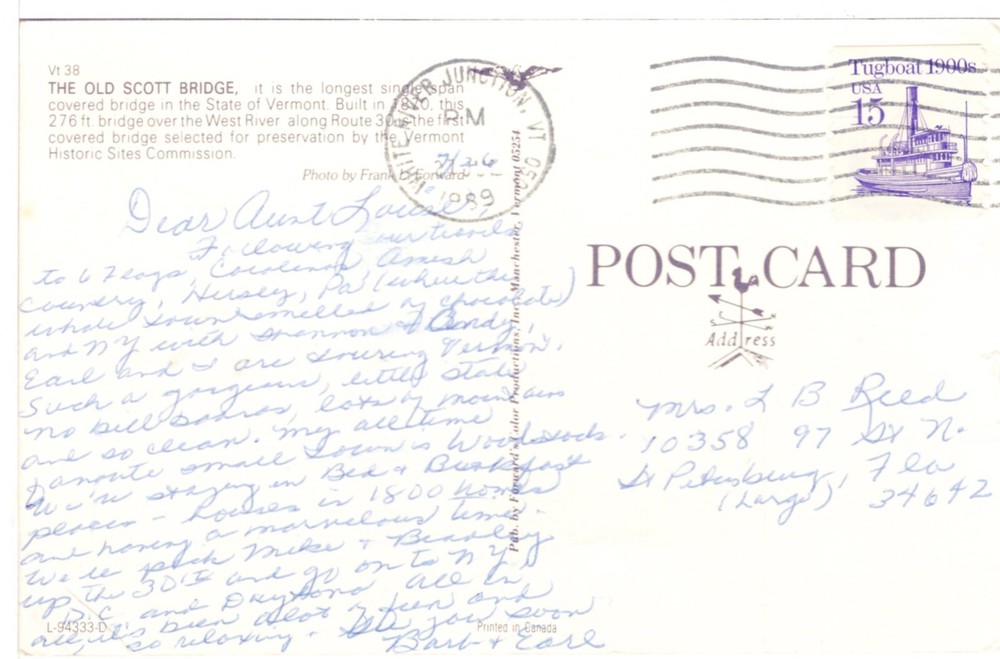 Vt 38
THE OLD SCOTT BRIDGE, it is the longest single span
covered bridge in the State of Vermont. Built in 1870, this
276 ft. bridge over the West River along Route 30 is the first
covered bridge selected for preservation by the Vermont
Historic Sites Commission.
Photo by Frank L. Forward
Dear Aunt Louise,
Following our travels
to 6 Flags, Carolinas, Amish
Country, Hersey, Pa (where the
whole town smelled of chocolate)
and NY with Shannon & Cindy,
Earl and I are touring Vermont.
Such a gorgeous, little state
no bill boards, lots of mountains
and so clean. My all time
favorite small town is Woodstock.
We're staying in Bed & Breakfast
places - houses in 1800 homes
and having a marvelous time.
We'll pick Mike & Bradley
up the 30th and go on to NY,
D.C and Daytona. All in
all, it's been alot of fun and
so relaxing. See you soon
Barb & Earl
L-94333-D
Printed in Canada
Pub. by Forward's Color Productions, Inc., Manchester, Vermont 05254
WHITE RIVER JUNCTION, VT
PM
7/26
1989
Tugboat 1900s
USA
15
POST CARD
Address
Mrs. L B Reed
10358 97 St N.
St Petersburg, Fla
(Largo) 34642